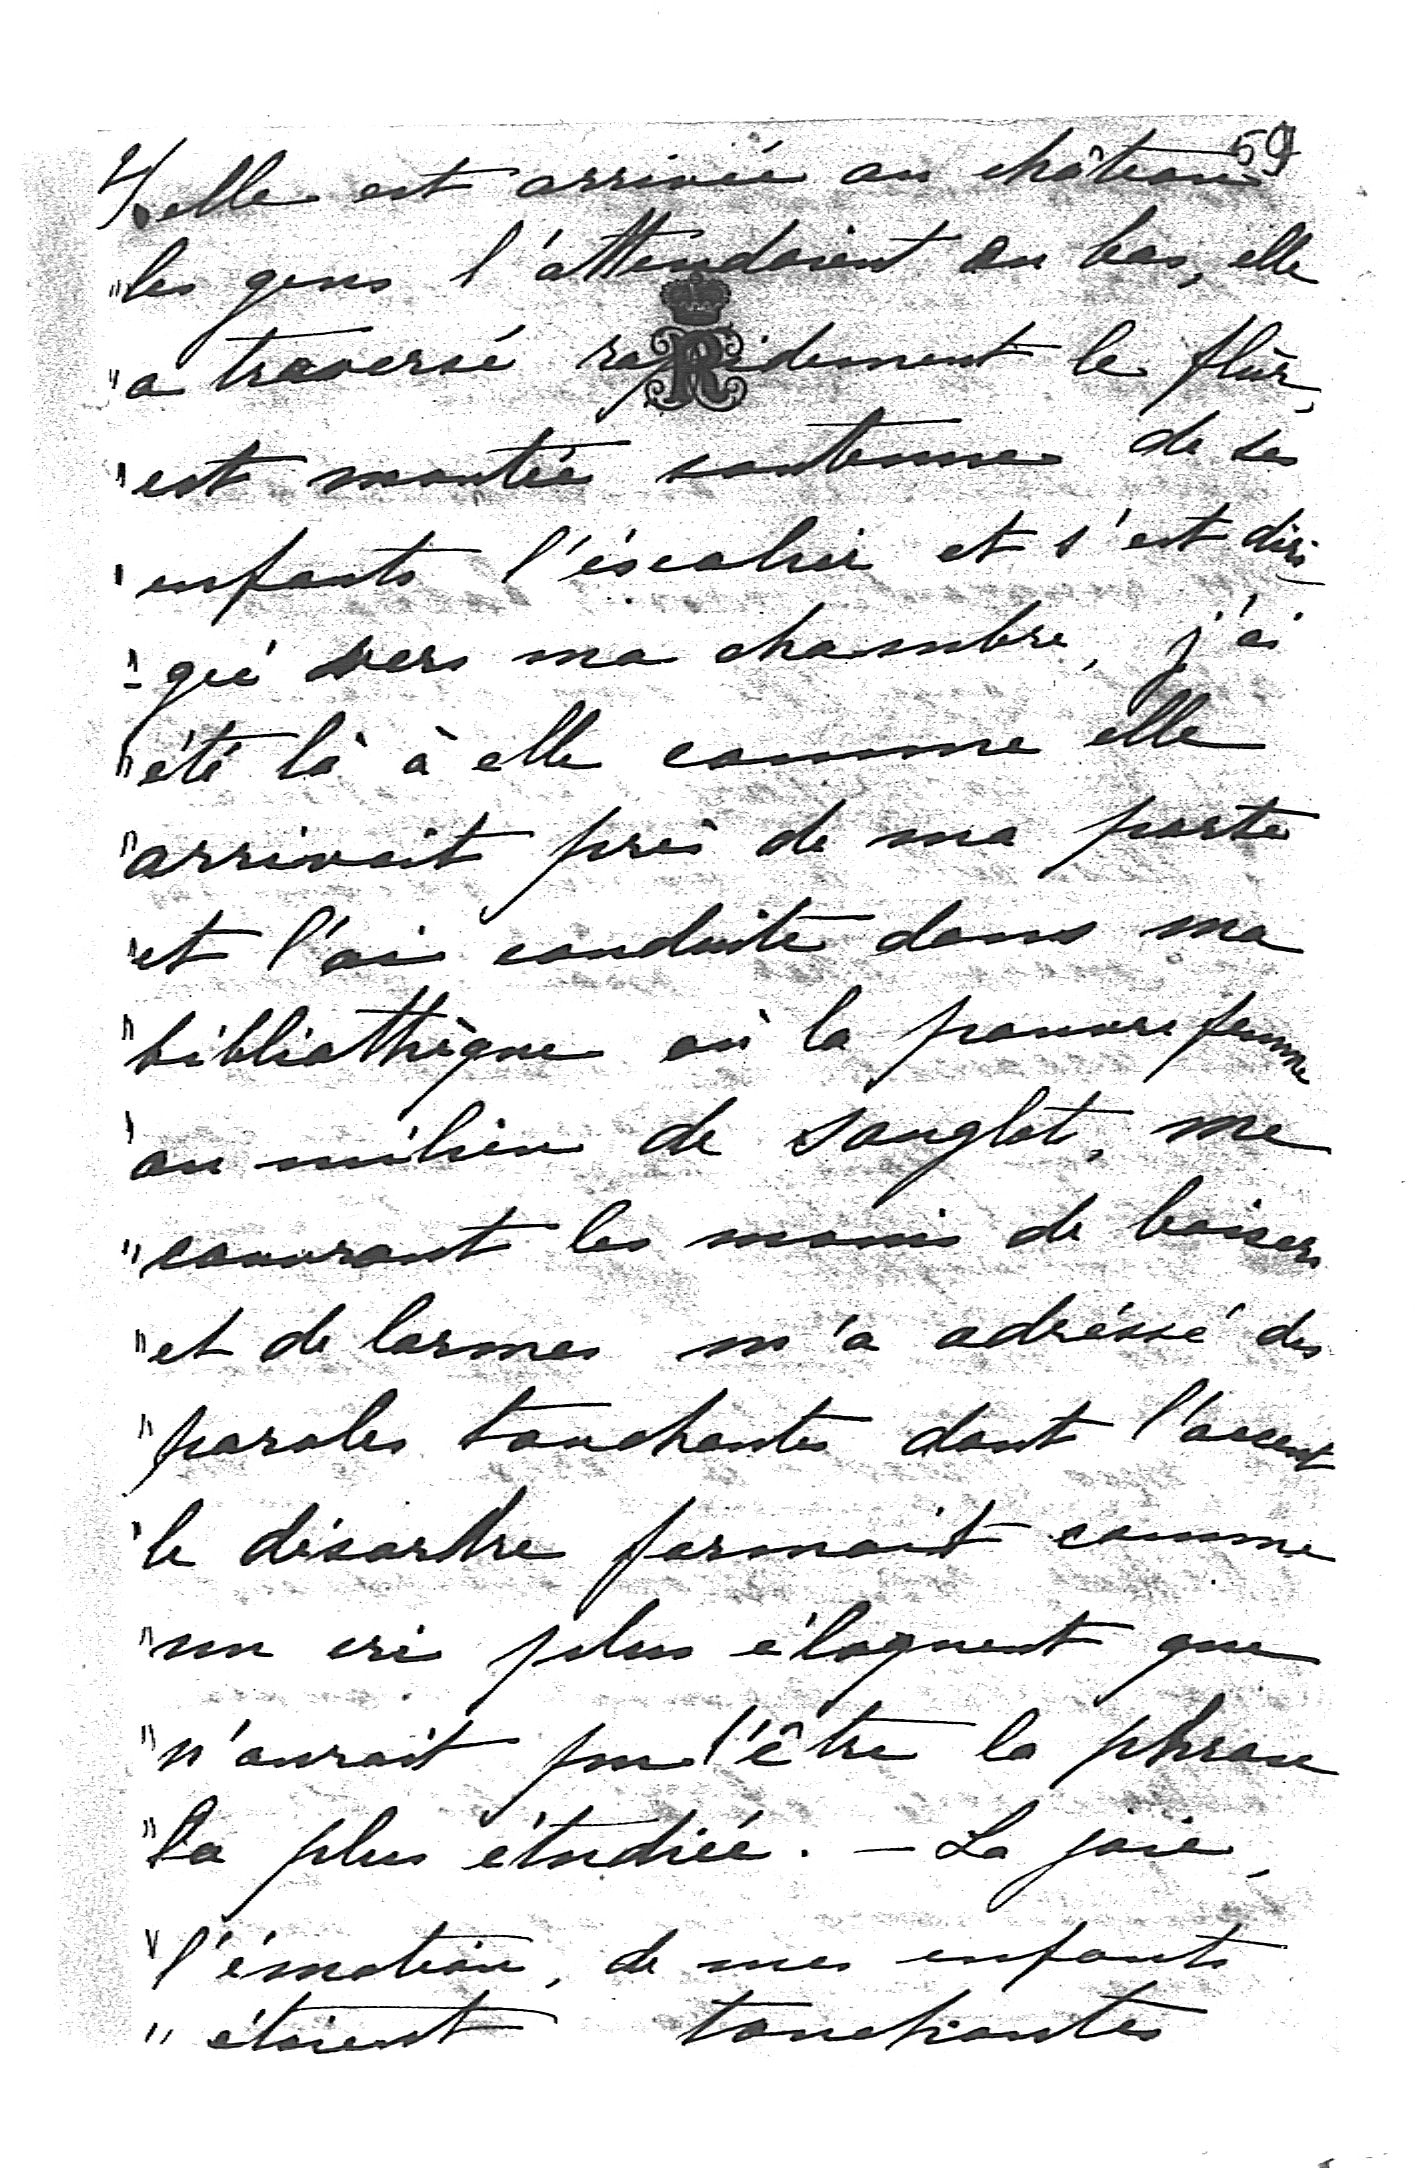 59
4/ elle est arrivée au château
"les gens l'attendaient au bas, elle
"a traversé rapidement le flur,
"est montée soutenue de ses
"enfants l'éscalier et s'est diri-
"-gé vers ma chambre, j'ai
"été là à elle comme elle
"arrivait près de ma porte
"et l'ai conduite dans ma
"bibliothèque où la pauvre femme
"au milieu de sanglot, me
"couvrant les mains de baisers
"et de larmes m'a adréssé des
"paroles touchantes dont l'accent
"le désordre formait comme
"un cri plus éloquent que
"n'aurait pu l'être la phrase
"la plus étudiée. – La joie,
"l'émotion, de mes enfants
"étaient touchantes
R